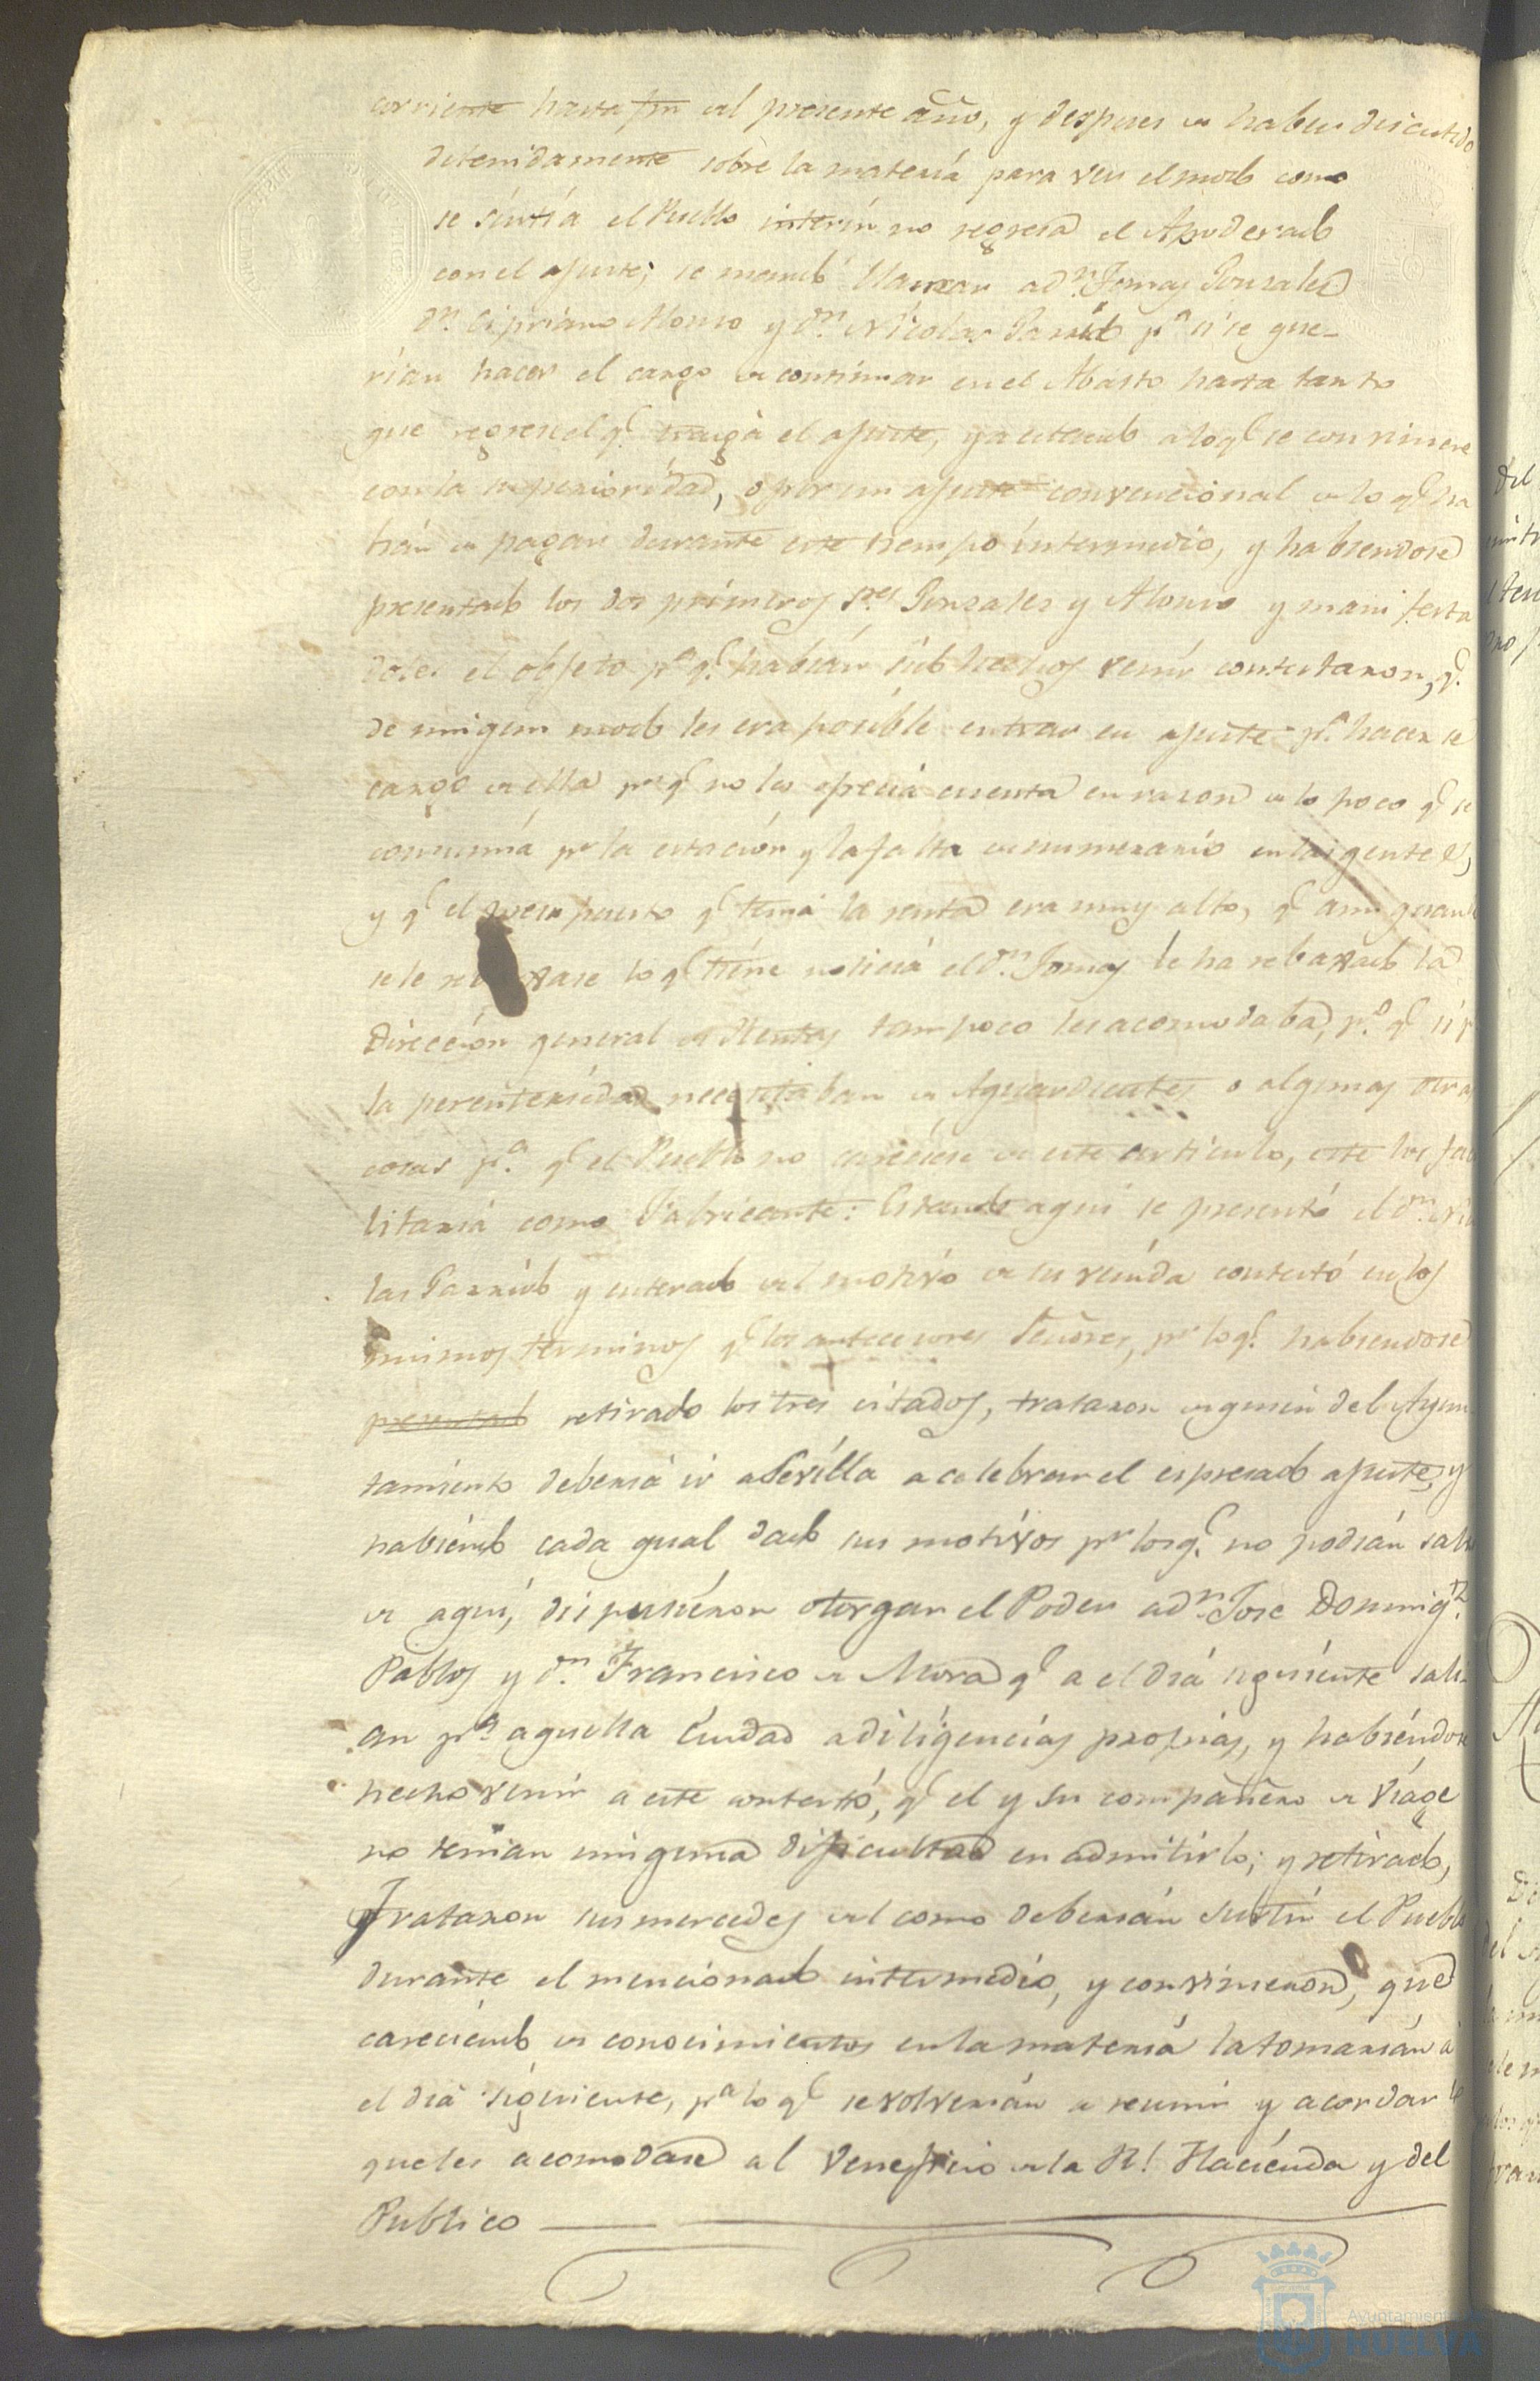 corriente hasta fin del presente año, y despues de haber discutido
detenidamente sobre la materia para ver el modo como
se surtia el Pueblo interin no regresa el Apoderado
con el ajuste; se mandó llamar a Dn. Tomas Gonzales
Dn. Cipriano Alonso y Dn. Nicolas Garrido pa. si se que-
rian hacer el cargo de continuar en el Abasto hasta tanto
que regrese el q. traiga el ajuste, y a lo q. se conviniere
con la superioridad, o por un ajuste convencional de lo q. ha
brán de pagar durante este tiempo intermedio, y habiendose
presentado los dos primeros Sres. Gonzales y Alonso y manifesta
doles el objeto pa. q. habian sido hechos venir contestaron, q.
de ningun modo les era posible entrar en ajuste pa. hacerse
cargo de ella pr. q. no les ofrecia cuenta en razon de lo poco q. se
consumia pr. la estación y la falta de numerario en las gentes,
y q. el presupuesto q. tenia la renta era muy alto, q. aun quando
se le rebaxase lo q. tiene noticia el Dn. Tomas le ha rebaxado la
Dirección general de Rentas tampoco les acomodaba, po. q. si pr.
la perenteridad necesitaban de Aguardientes o algunas otras
cosas pa. q. el Pueblo no careciese de este articulo, este los faci
litaria como Fabricante: Estando aqui se presentó el Dn. Nico
las Garrido y enterado del motivo de su venida contestó en los
mismos terminos q. los antecesores Señores, pr. lo q. habiendose
presentado retirado los tres citados, trataron de quien del Ayun
tamiento deberia ir a Sevilla a celebrar el espresado ajuste, y
habiendo cada qual dado sus motivos pr. los q. no podian salir
de aqui, dispusieron otorgar el Poder a Dn. Jose Domingz.
Pablos y Dn. Francisco de Mora q. a el dia siguiente sali-
an pa. aquella Ciudad a diligencias propias, y habiendose
hecho venir a este contestó, q. el y su compañero de viage
no tenian ninguna dificultad en admitirlo; y retirado,
Trataron sus mercedes del como deberian surtir el Pueblo
durante el mencionado intermedio, y convinieron, que
careciendo de conocimientos en la materia la tomarian a
el dia siguiente, pa. lo q. se volverian a reunir y acordar lo
que les acomodase al veneficio de la Rl. Hacienda y del
Publico
Ayuntamiento
HUELVA